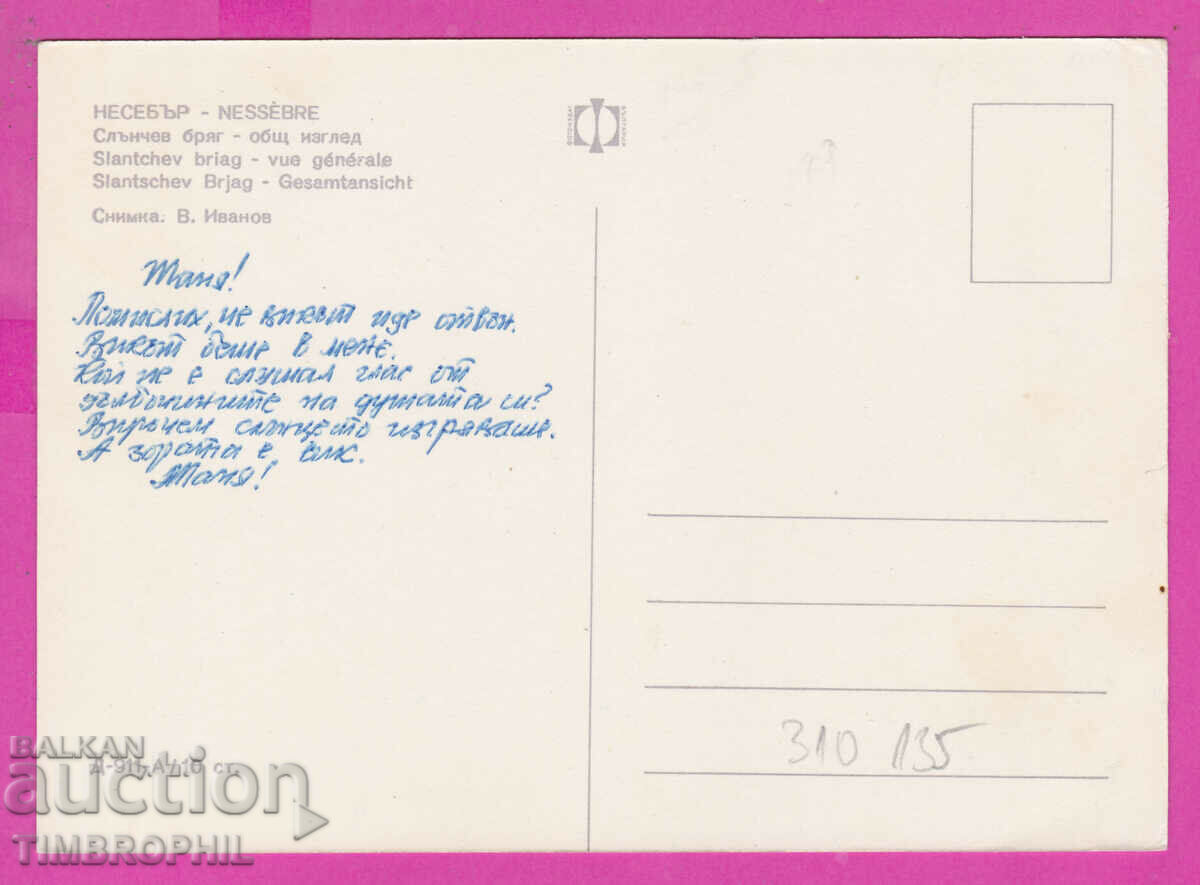 НЕСЕБЪР - NESSÈBRE
Слънчев бряг - общ изглед
Slantchev briag - vue générale
Slantschev Brjag - Gesamtansicht
Снимка. В. Иванов
Таня!
Помислих, че викът иде отвън.
Викът беше в мене.
Кой не е слушал глас от
дълбочините на душата си?
Впрочем слънцето изгряваше.
А зората е
Таня!
Д-911-А/ 10 ст.
310 135
BALKAN
auction
TIMBROPHIL